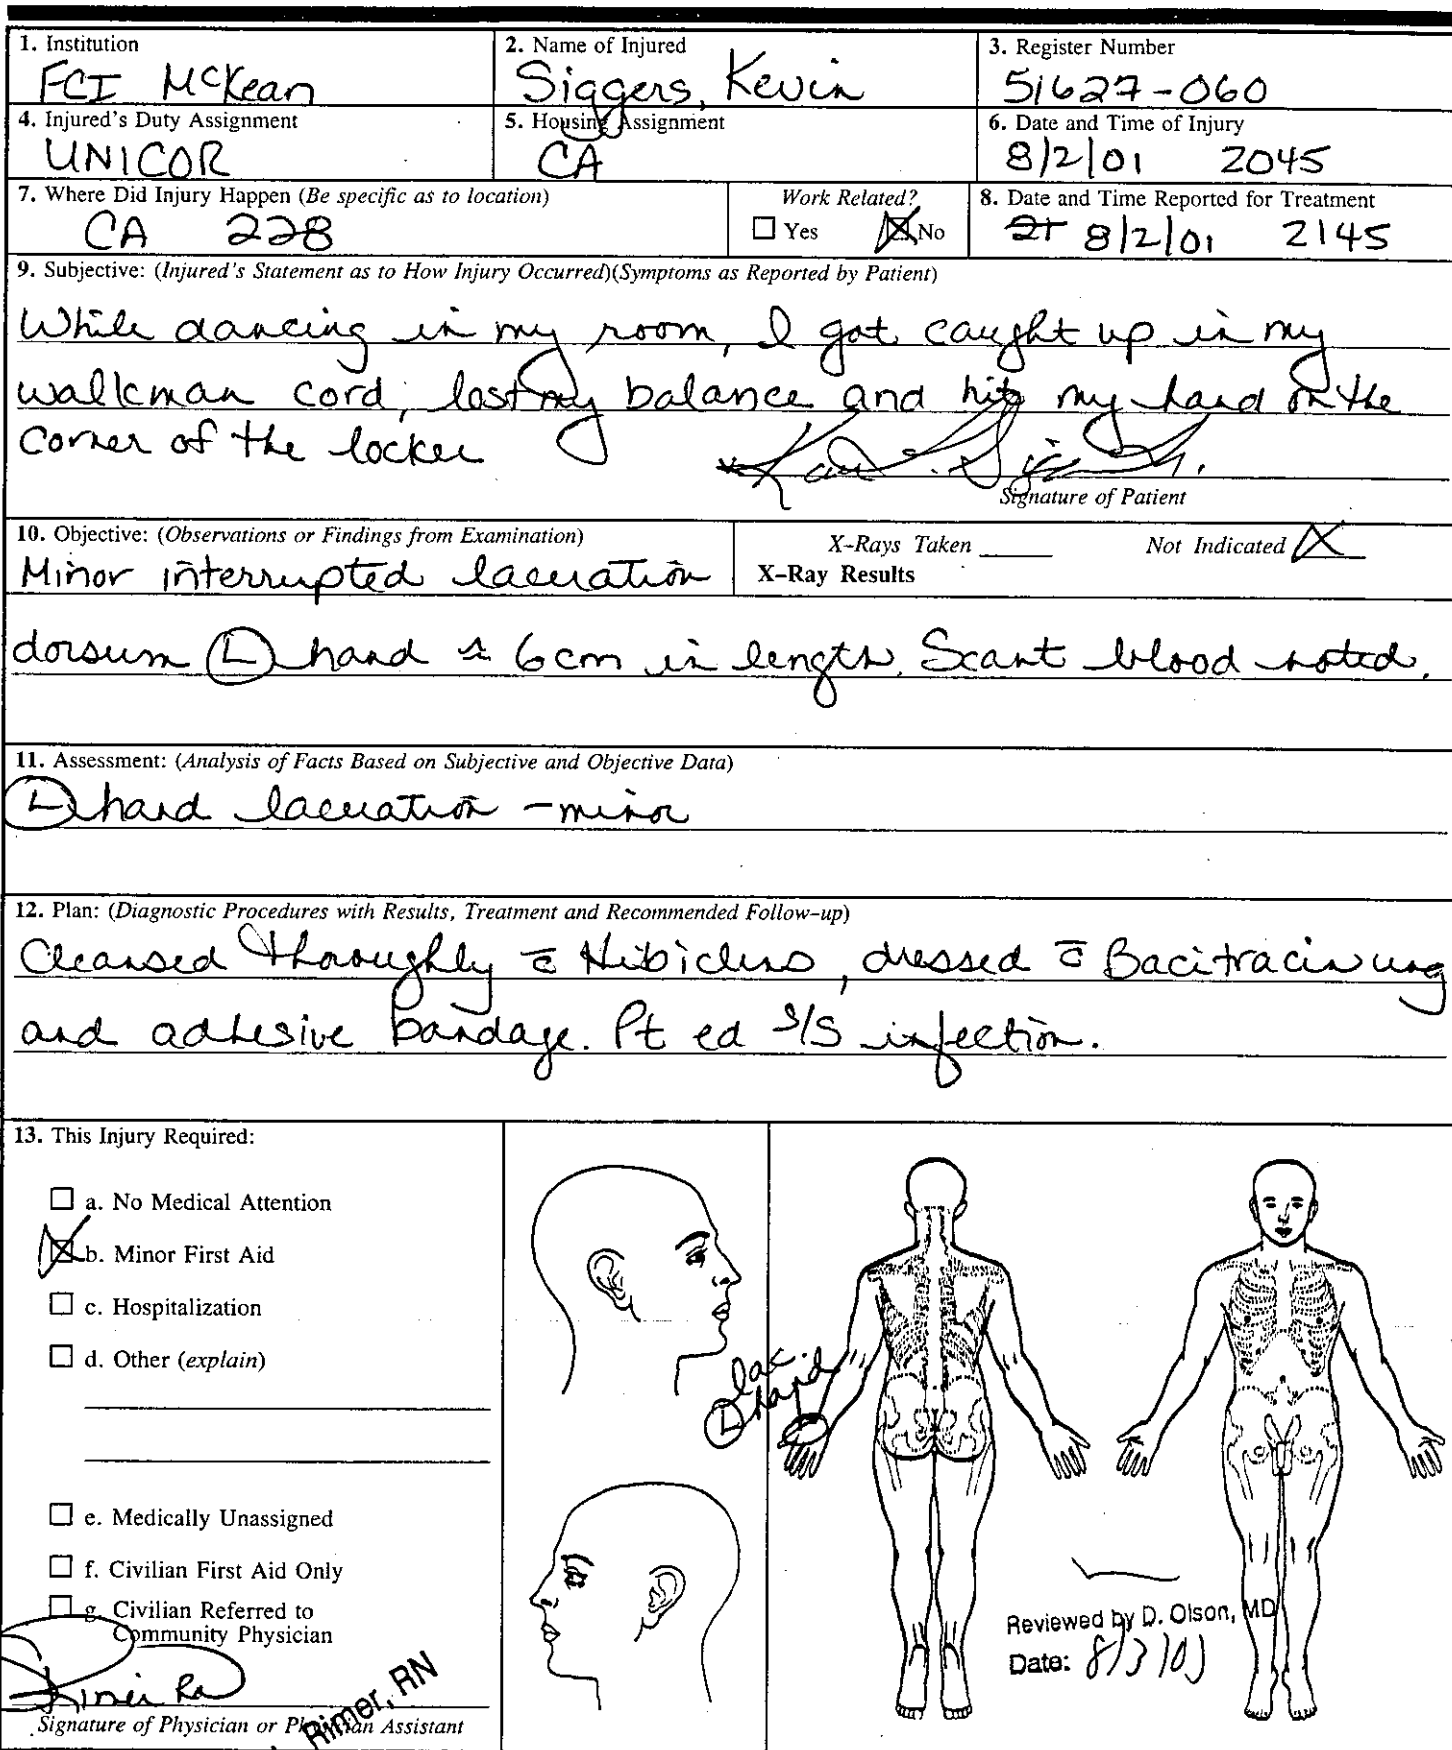 1. Institution
FCI McKean
2. Name of Injured
Siggers, Kevin
3. Register Number
51627-060
4. Injured's Duty Assignment
UNICOR
5. Housing Assignment
CA
6. Date and Time of Injury
8/2/01 2045
7. Where Did Injury Happen (Be specific as to location)
CA 228
Work Related?
Yes No
8. Date and Time Reported for Treatment
21 8/2/01 2145
9. Subjective: (Injured's Statement as to How Injury Occurred)(Symptoms as Reported by Patient)
While dancing in my room, I got caught up in my
walkman cord, lost my balance and hit my hand on the
corner of the locker
Signature of Patient
10. Objective: (Observations or Findings from Examination)
X-Rays Taken Not Indicated X
X-Ray Results
Minor interrupted laceration
dorsum L hand ≈ 6 cm in length. Scant blood noted.
11. Assessment: (Analysis of Facts Based on Subjective and Objective Data)
L hand laceration - minor
12. Plan: (Diagnostic Procedures with Results, Treatment and Recommended Follow-up)
Cleansed thoroughly c̄ Hibiclens, dressed c̄ Bacitracin ung
and adhesive bandage. Pt ed S/S infection.
13. This Injury Required:
a. No Medical Attention
b. Minor First Aid
c. Hospitalization
d. Other (explain)
e. Medically Unassigned
f. Civilian First Aid Only
g. Civilian Referred to
Community Physician
Rimer, RN
Signature of Physician or Physician Assistant
lac.
L hand
Reviewed by D. Olson, MD
Date: 8/3/01